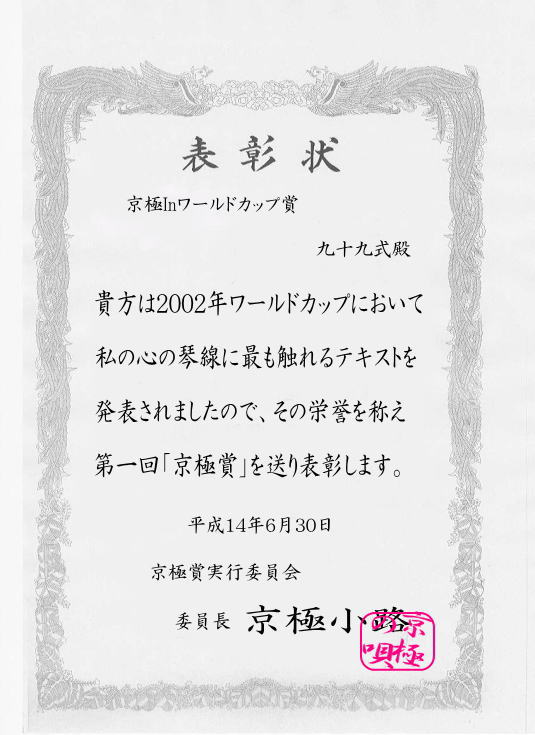 表彰状
京極Inワールドカップ賞
九十九式殿
貴方は2002年ワールドカップにおいて
私の心の琴線に最も触れるテキストを
発表されましたので、その栄誉を称え
第一回「京極賞」を送り表彰します。
平成14年6月30日
京極賞実行委員会
委員長 京極小路
京極